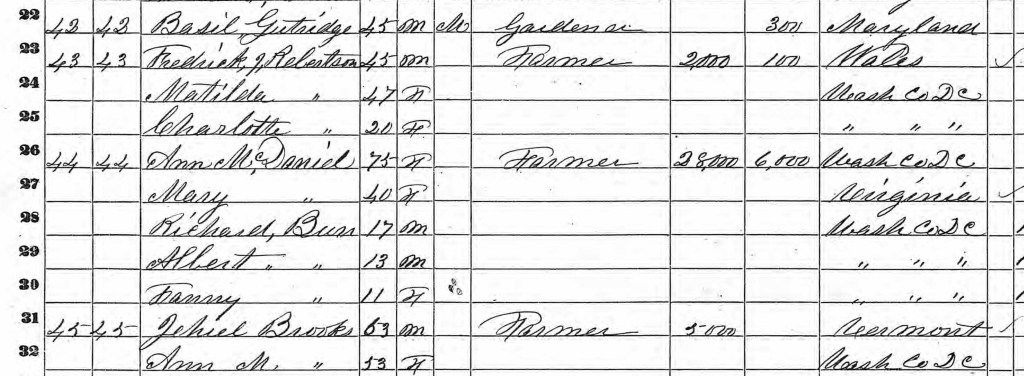 22 42 42 Basil Gutridge 45 m M Gardener 300 Maryland
23 43 43 Fredrick, J, Robertson 45 m Farmer 2,000 100 Wales
24 Matilda " 47 F Wash Co DC
25 Charlotte " 20 F " " "
26 44 44 Ann McDaniel 75 F Farmer 28,000 6,000 Wash Co DC
27 Mary " 40 F Virginia
28 Richard, Burr 17 m Wash Co DC
29 Albert " " 13 m " " "
30 Fanny " 11 F " " "
31 45 45 Jehiel Brooks 63 m Farmer 5000 Vermont
32 Ann M. " 53 F Wash Co DC